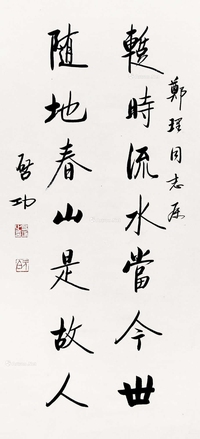 鄭理同志屬
暫時流水當今世
随地春山是故人
啓功